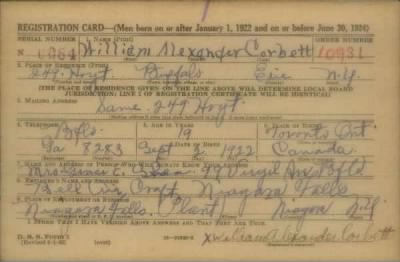 REGISTRATION CARD—(Men born on or after January 1, 1922 and on or before June 30, 1924)
SERIAL NUMBER 1. NAME (Print) ORDER NUMBER
N William Alexander Corbett 10931
2. PLACE OF RESIDENCE (Print)
249 Hoyt Buffalo Erie N.Y.
(THE PLACE OF RESIDENCE GIVEN ON THE LINE ABOVE WILL DETERMINE LOCAL BOARD
JURISDICTION; LINE 2 OF REGISTRATION CERTIFICATE WILL BE IDENTICAL)
3. MAILING ADDRESS
Same 249 Hoyt
4. TELEPHONE 5. AGE IN YEARS 6. PLACE OF BIRTH
Bflo. 19 Toronto Ont
DATE OF BIRTH
Ga 8283 Sept 1922 Canada
7. NAME AND ADDRESS OF PERSON WHO WILL ALWAYS KNOW YOUR ADDRESS
Mrs Virgil Ave Bflo
8. EMPLOYER'S NAME AND ADDRESS
Bell Air Craft Niagara Falls
9. PLACE OF EMPLOYMENT OR BUSINESS
Niagara Falls Plant Niagara N.Y.
I AFFIRM THAT I HAVE VERIFIED ABOVE ANSWERS AND THAT THEY ARE TRUE.
D. S. S. Form 1
x William Alexander Corbett